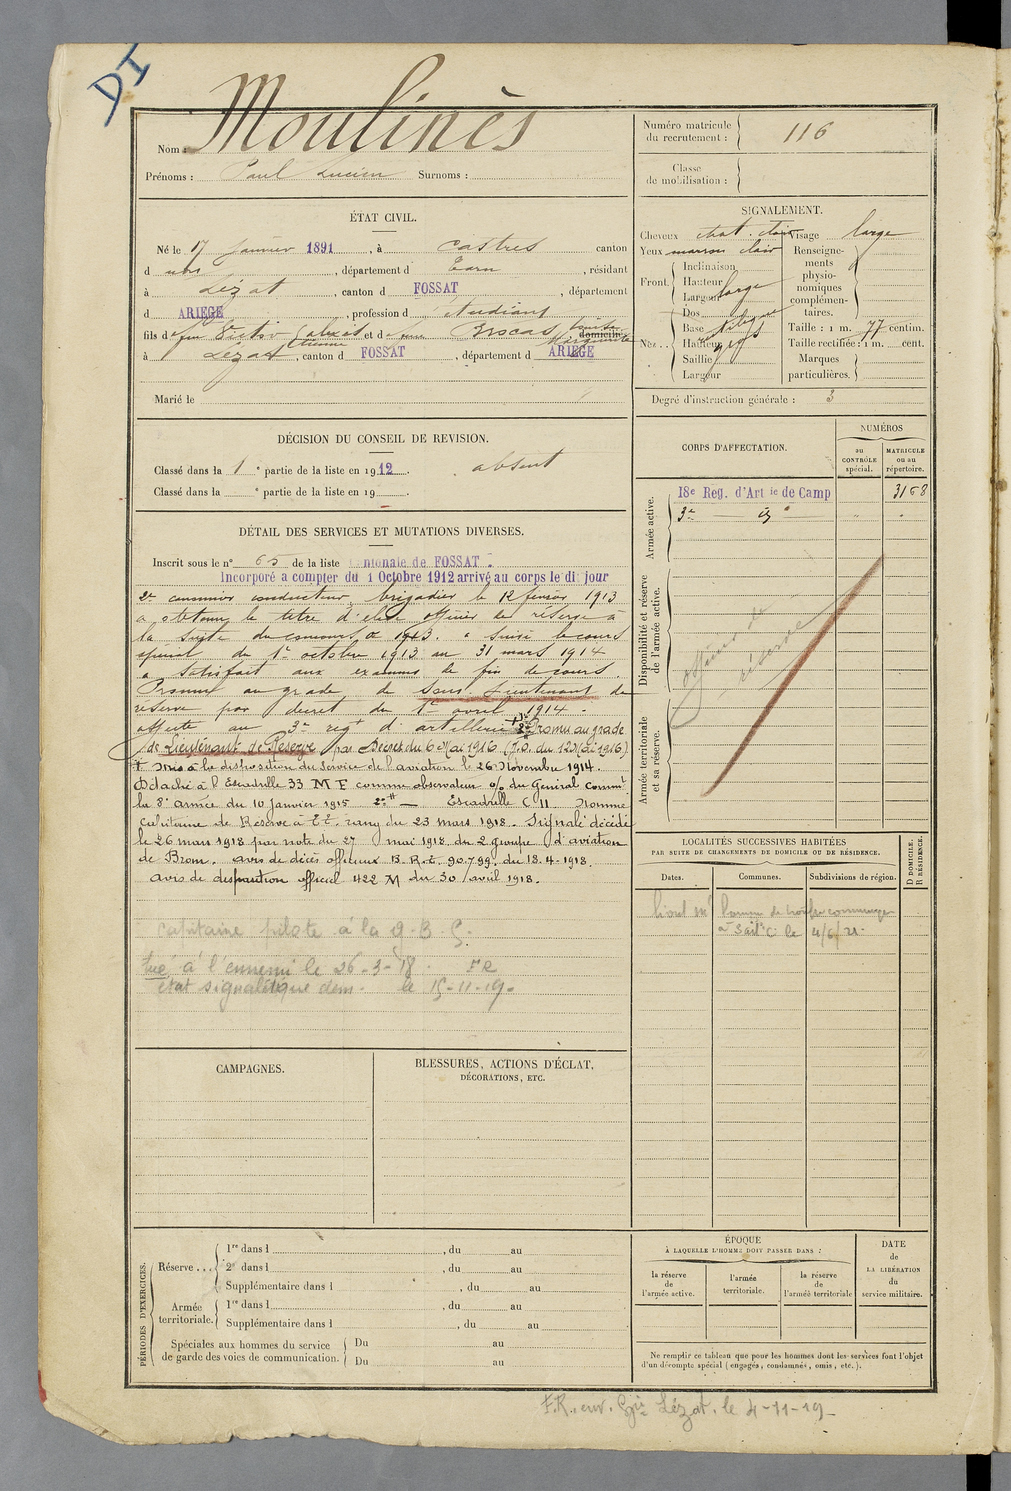 DI
Nom : Moulinès
Prénoms : Paul Lucien Surnoms :
Numéro matricule du recrutement : 116
Classe de mobilisation :
ÉTAT CIVIL.
Né le 17 Janvier 1891, à Castres canton
d udis, département d Tarn, résidant
à Lézat, canton d FOSSAT, département
d ARIEGE, profession d étudiant
fils d feu Victor Etienne et d Brocas Marguerite domicilié
à Lézat, canton d FOSSAT, département d ARIEGE
Marié le
SIGNALEMENT.
Cheveux chat. clair Visage large
Yeux marron clair Renseignements physionomiques complémentaires.
Front. Inclinaison
Hauteur
Largeur large
Nez.. Dos
Base oblique
Hauteur gros
Saillie
Largeur
Taille : 1 m. 77 centim.
Taille rectifiée : 1 m. cent.
Marques particulières.
Degré d'instruction générale : 3
DÉCISION DU CONSEIL DE REVISION.
Classé dans la 1e partie de la liste en 1912. absent
Classé dans la e partie de la liste en 19
CORPS D'AFFECTATION.
NUMÉROS
au CONTRÔLE spécial.
MATRICULE ou au répertoire.
Armée active.
18e Reg. d'Art ie de Camp 3168
3e — d°
Disponibilité et réserve de l'armée active.
officier de réserve
Armée territoriale et sa réserve.
DÉTAIL DES SERVICES ET MUTATIONS DIVERSES.
Inscrit sous le n° 65 de la liste cantonale de FOSSAT.
Incorporé a compter du 1 Octobre 1912 arrivé au corps le dit jour
2e canonnier conducteur, brigadier le 12 février 1913
a obtenu le titre d'élève officier de réserve à
la suite du concours de 1913. a suivi le cours
spécial du 1er octobre 1913 au 31 mars 1914
a satisfait aux examens de fin de cours.
Promu au grade de Sous-Lieutenant de
réserve par décret du 1er avril 1914 -
affecté au 3e régt d'artillerie Promu au grade
de Lieutenant de Réserve par Décret du 6 Mai 1916 (J.O. du 12 Mai 1916)
+ Mis à la disposition du service de l'aviation le 26 Novembre 1914.
Détaché à l'Escadrille 33 M F comme observateur o/o du Général Commt
la 8e armée du 10 janvier 1915 — Escadrille C 11 Nommé
Capitaine de Réserve à T.T. rang du 23 mars 1918. Signalé décédé
le 26 mars 1918 par note du 27 mai 1918 du 2 groupe d'aviation
de Bron. avis de décès officieux B.R.E. 90.799. du 18.4.1918.
avis de disparition officiel 422 M du 30 avril 1918.
capitaine pilote à la
tué à l'ennemi le 26-3-18.
état signalétique dem. le 15-11-19.
LOCALITÉS SUCCESSIVES HABITÉES
PAR SUITE DE CHANGEMENTS DE DOMICILE OU DE RÉSIDENCE.
D DOMICILE. R RÉSIDENCE.
Dates. Communes. Subdivisions de région.
le 4/6/21.
CAMPAGNES.
BLESSURES, ACTIONS D'ÉCLAT,
DÉCORATIONS, ETC.
PÉRIODES D'EXERCICES.
Réserve... 1re dans l , du au
2e dans l , du au
Supplémentaire dans l , du au
Armée territoriale. 1re dans l , du au
Supplémentaire dans l , du au
Spéciales aux hommes du service de garde des voies de communication. Du au
Du au
ÉPOQUE
À LAQUELLE L'HOMME DOIT PASSER DANS :
la réserve de l'armée active.
l'armée territoriale.
la réserve de l'armée territoriale
DATE de LA LIBÉRATION du service militaire.
Ne remplir ce tableau que pour les hommes dont les services font l'objet
d'un décompte spécial (engagés, condamnés, omis, etc.).
F.R. env. Gie Lézat. le 4-11-19